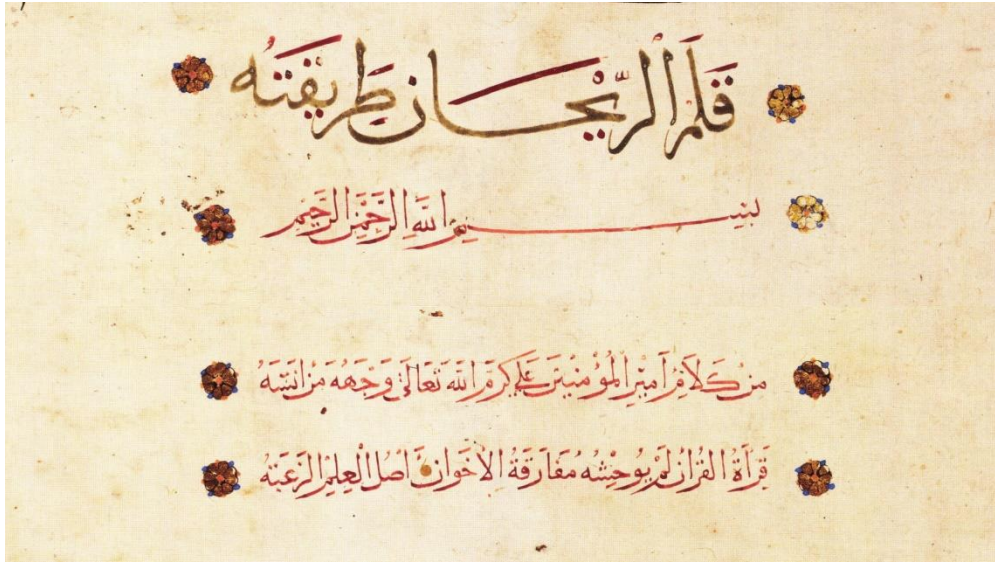 قَلَمُ الرَّيْحَانِ طَرِيقَتُهُ
بِسْمِ اللَّهِ الرَّحْمَنِ الرَّحِيمِ
مِنْ كَلَامِ أَمِيرِ الْمُؤْمِنِينَ عَلِي كَرَّمَ اللَّهُ تَعَالَى وَجْهَهُ مَنْ آنَسَهُ
قِرَآةُ الْقُرْآنِ لَمْ يُوحِشْهُ مُفَارَقَةُ الْإِخْوَانِ أَصْلُ الْعِلْمِ الرَّغْبَةُ